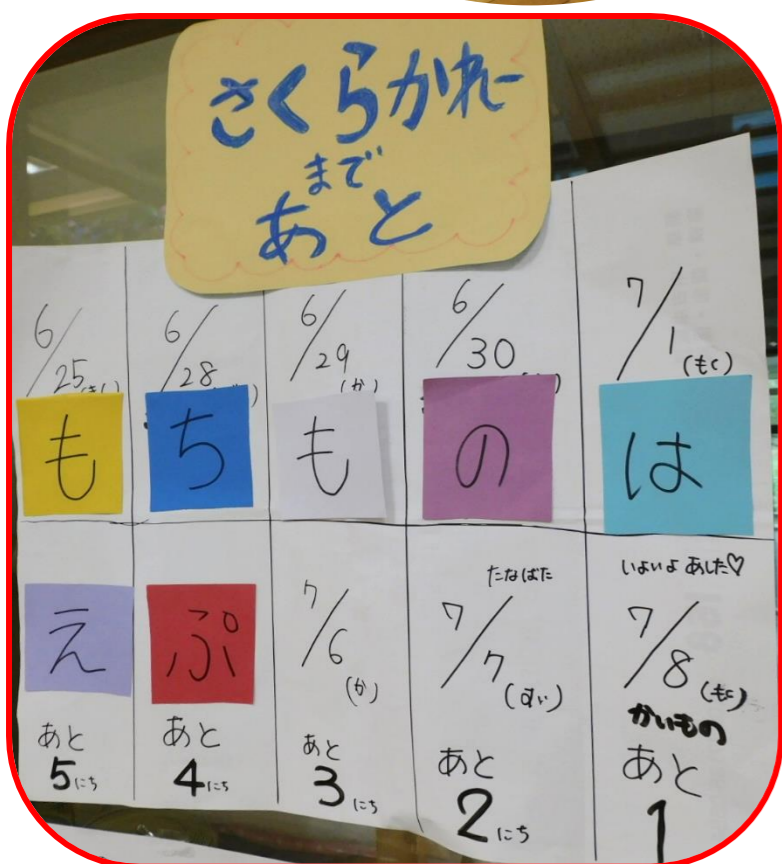 さくらかれー
まで
あと
6/25
6/28
6/29 (か)
6/30
7/1 (もく)
も
ち
も
の
は
え
ぷ
7/6 (か)
たなばた
7/7 (すい)
いよいよあした♡
7/8 (もく)
かいもの
あと
5にち
あと
4にち
あと
3にち
あと
2にち
あと
1